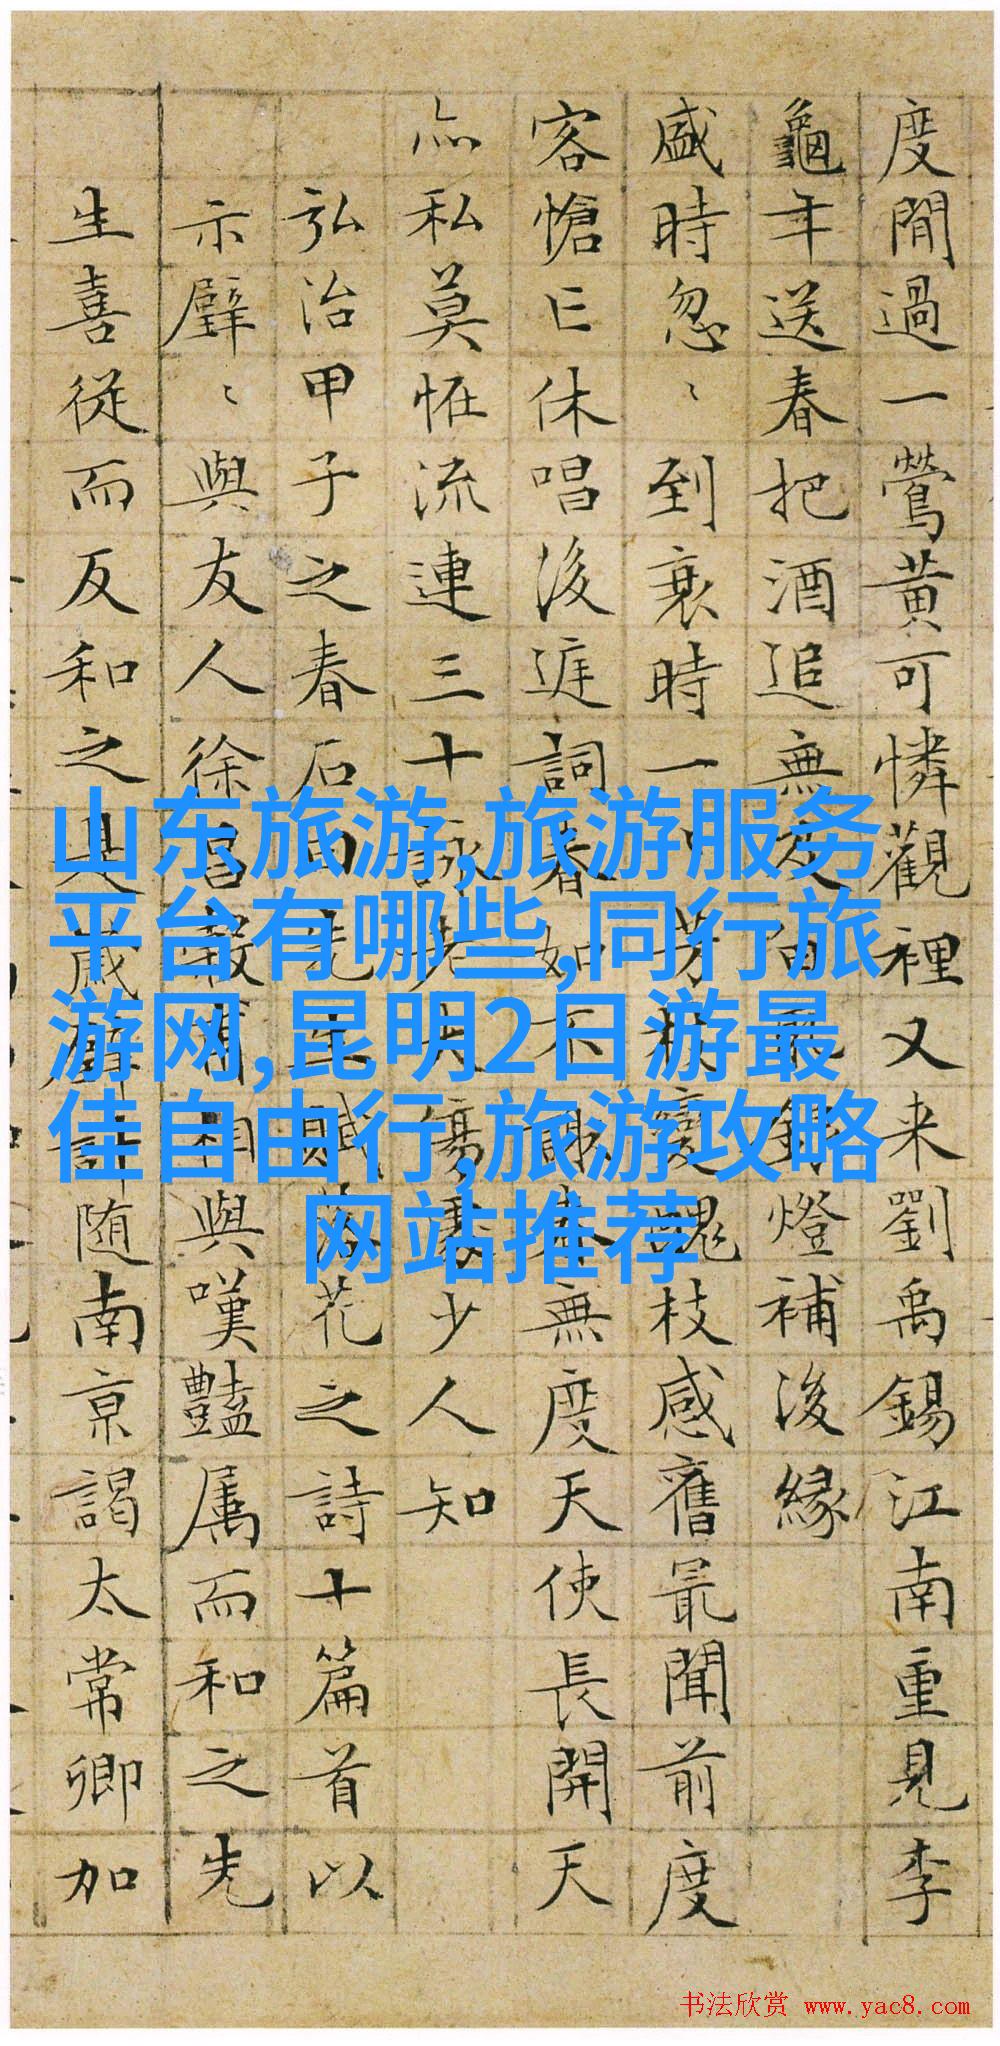 度閒過一鶯黃可憐觀裡又来劉禹錫江南重見李
龜年送春把酒追無及銀燈補後緣
盛時忽〻到衰時一芳枝變醜枝感舊最聞前度
客愴亡休唱後庭詞春如不謝春無度天使長開天
亦私莫恠流連三十詠老夫傷處少人知
弘治甲子之春石田先生賦落花之詩十篇首以
示璧〻與友人徐昌穀甫相與嘆豔属而和之先
生喜從而反和之是歲璧計随南京謁太常卿加
山东旅游,旅游服务
平台有哪些,同行旅
游网,昆明2日游最
佳自由行,旅游攻略
网站推荐
书法欣赏 www.yac8.com